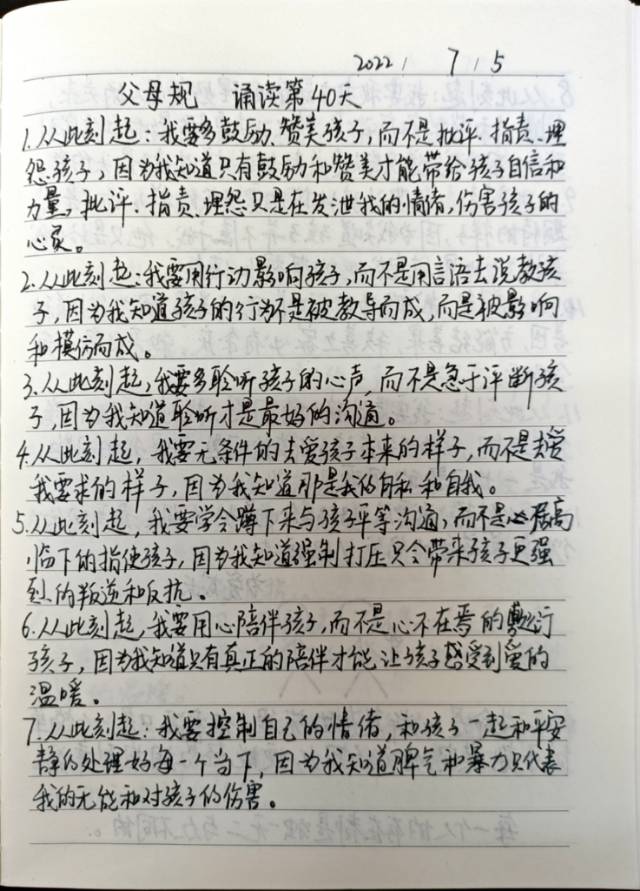 2022 / 7 / 5
父母规 诵读第40天
1.从此刻起:我要多鼓励、赞美孩子,而不是批评、指责、埋
怨孩子,因为我知道只有鼓励和赞美才能带给孩子自信和
力量,批评、指责、埋怨只是在发泄我的情绪,伤害孩子的
心灵。
2.从此刻起:我要用行动影响孩子,而不是用言语去说教孩
子,因为我知道孩子的行为不是被教导而成,而是被影响
和模仿而成。
3.从此刻起,我要多聆听孩子的心声,而不是急于评断孩
子,因为我知道聆听才是最好的沟通。
4.从此刻起,我要无条件的去爱孩子本来的样子,而不是去爱
我要求的样子,因为我知道那是我的自私和自我。
5.从此刻起,我要学会蹲下来与孩子平等沟通,而不是居高
临下的指使孩子,因为我知道强制打压只会带来孩子更强
烈的叛逆和反抗。
6.从此刻起,我要用心陪伴孩子,而不是心不在焉的敷衍
孩子,因为我知道只有真正的陪伴才能让孩子感受到爱的
温暖。
7.从此刻起:我要控制自己的情绪,和孩子一起和平安
静的处理好每一个当下,因为我知道脾气和暴力只代表
我的无能和对孩子的伤害。